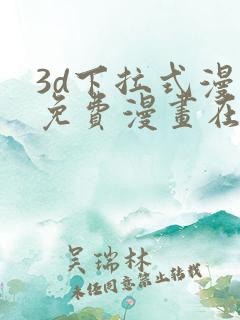 3d下拉式漫
免費漫畫在
吴瑞林
未经同意禁止转载